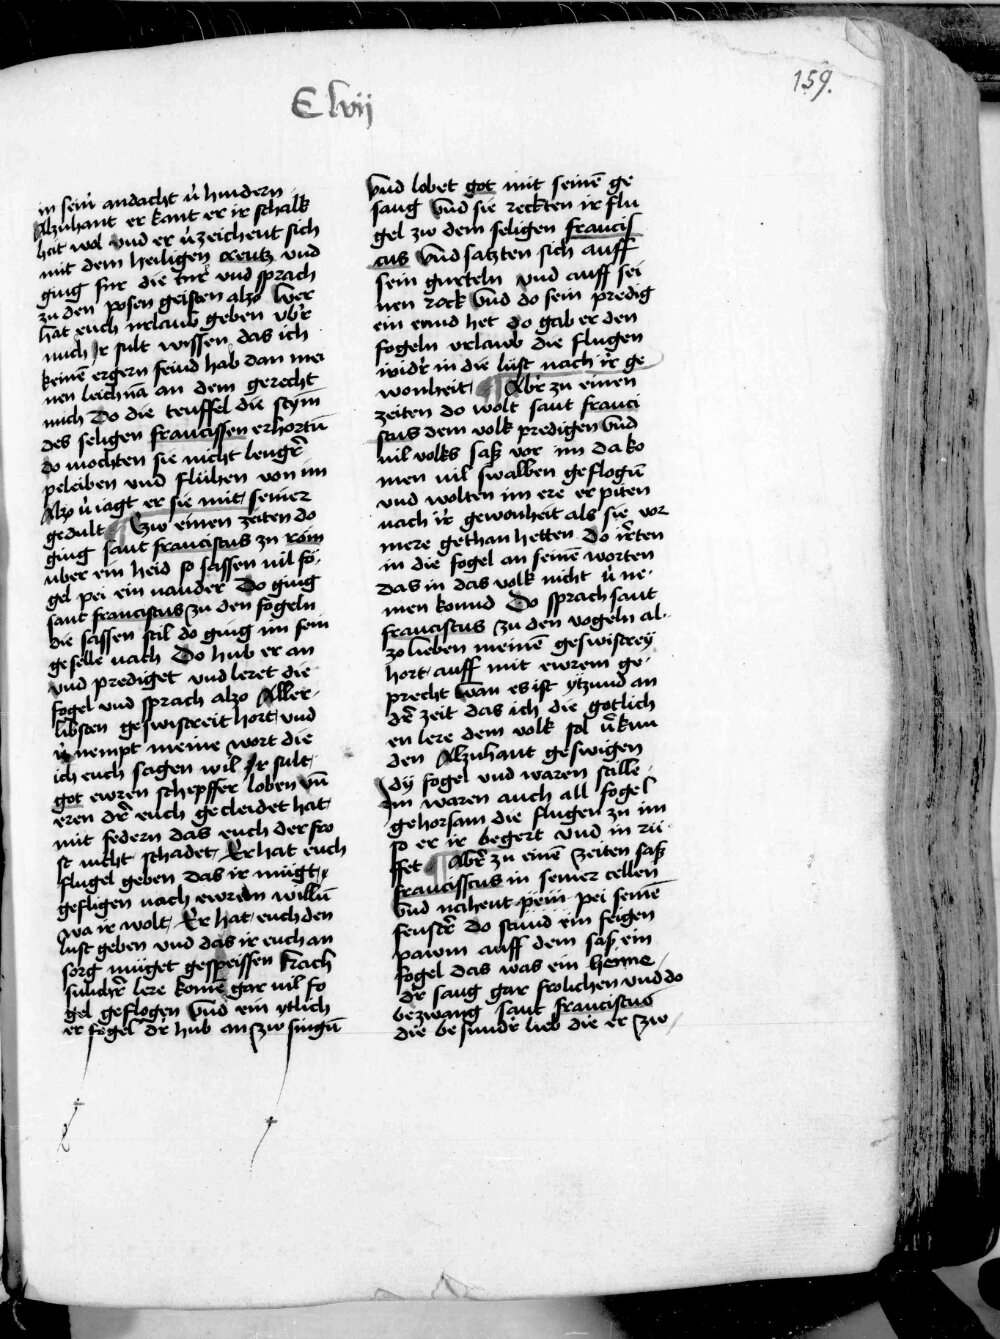 159.
C lvij
in seiñ andacht v̉ hindern
Alzuhant er kant er ir schalk
heit wol vnd er v̉zeichent sich
mit dem heiligen creutz vnd
ging für die tür vnd sprach
zu den posen geisten alzo wer
hat euch vrlaub geben vb̉r
mich Ir sult wissen das ich
keinē ergern feind hab dan mei
nen leichnā an dem gerecht
mich Do die teuffel die stym
des seligen francissen erhortn̄
do mochten sie nicht lengr̉
peleiben vnd fluhen von im
Alzo v̉iagt er sie mit seiner
gedult ¶ Zw einen zeiten do
ging sant franciscus zu rom
vber ein heid so sassen vil fo
gel pei ein nander Do ging
sant franciscus zu den fogeln
die sassen stil do ging im sein
geselle nach Do hub er an
vnd prediget vnd leret die
fogel vnd sprach alzo Aller
libsten geswistreit hort vnd
v̉nempt meine wort die
ich euch sagen wil Ir sult
got ewren schepffer loben vn̄
eren dr̉ euch gecleidet hat
mit federn das euch der fro
st nicht schadet Er hat euch
flugel geben das ir mugt
gefligen nach ewren willn̄
wa ir wolt Er hat euch den
lust geben vnd das ir euch an
sorg muget gespeissen Nach
sulichr̉ lere komē gar vil fo
gel geflogen Vnd ein ytlich
er fogel dr̉ hub an zw singn̄
Vnd lobet got mit seinē ge
sang Vnd sie reckten ir flu
gel zw dem seligen francis
cus Vnd satzten sich auff
sein gurteln vnd auff sei
nen rock Vnd do sein predig
ein ennd het do gab er den
fogeln vrlawb die flugen
widr̉ in die lüft nach ir̉ ge
wonheit ¶ Abr̉ zu einen
zeiten do wolt sant franci
scus dem volk predigen Vnd
vil volks saß vor im da ko
men vil swalben geflogn̄
vnd wolten im ere er piten
nach ir̉ gewonheit als sie vor
mere gethan hetten Do ir̉ten
in die fogel an seinē worten
das in das volk nicht v̉ ne
men konnd Do sprach sant
franciscus zu den vogeln al
zo lieben meinē geswistrey
hort auff mit ewrem ge
precht wan es ist ytzund an
dr̉ zeit das ich die gotlich
en lere dem volk sol v̉kun
den Alzuhant geswigen
dy fogel vnd waren stille
Im waren auch all fogel
gehorsam die flugen zu im
so er ir begert vnd in rü
ffet ¶ Abr̉ zu einē zeiten saß
francisscus in seiner cellen
Vnd nahent peẏ pei seinē
fenstr̉ Do stund ein feigen
pawm auff dem saß ein
fogel das was ein heime
dr̉ sang gar frolichen vnd do
bezwang sant franciscus
die besundr̉ lieb die er zw